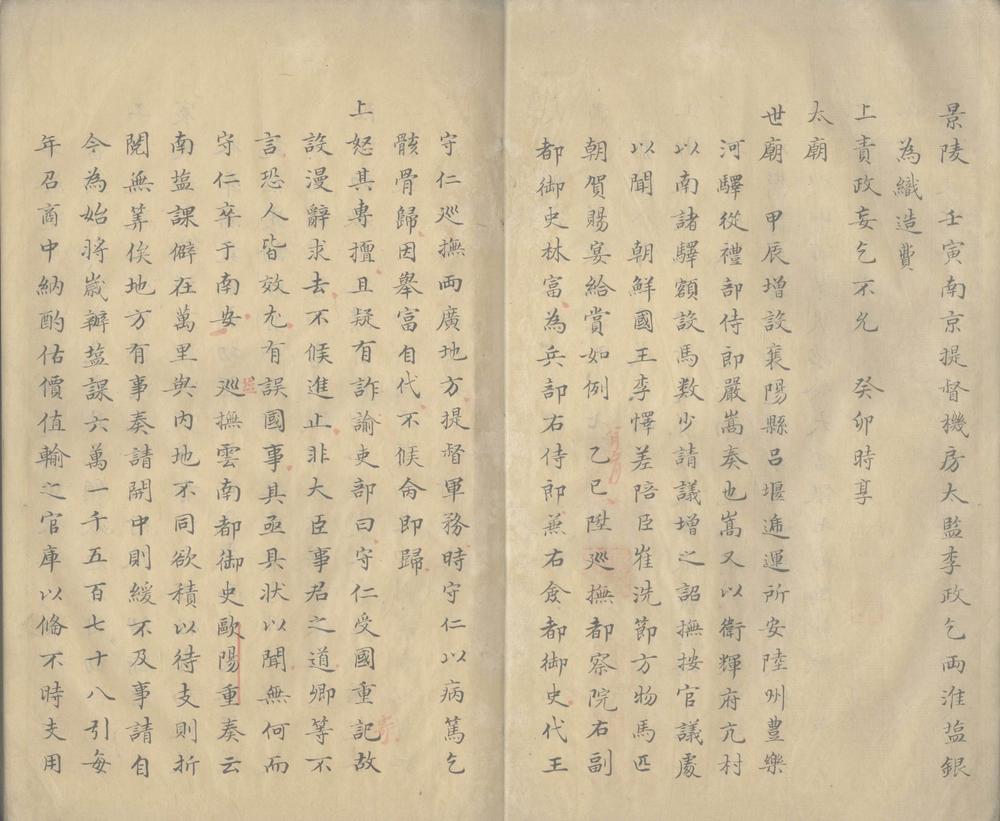 景陵　壬寅南京提督機房大監李政乞両淮塩銀
為織造費
上責政妄乞不允　癸卯時享
太廟
世廟　甲辰增設襄陽縣呂堰逓運所安陸州豊樂
河驛從禮部侍郎嚴嵩奏也嵩又以衛輝府亢村
以南諸驛額設馬数少請議增之詔撫按官議處
以聞　朝鮮國王李懌差陪臣崔洗節方物馬匹
朝賀賜宴給賞如例　乙巳陞巡撫都察院右副
都御史林富為兵部右侍郎兼右僉都御史代王
守仁巡撫両廣地方提督軍務時守仁以病篤乞
骸骨歸因舉富自代不候命即歸
上怒其専擅且疑有詐諭吏部曰守仁受國重記故
設漫辭求去不候進止非大臣事君之道卿等不
言恐人皆效尤有誤國事其亟具状以聞無何而
守仁卒于南安　巡撫雲南都御史歐陽重奏云
南塩課僻在萬里與内地不同欲積以待支則折
閱無筭俟地方有事奏請開中則緩不及事請自
今為始將嵗辦塩課六萬一千五百七十八引毎
年召商中納酌估價值輸之官庫以俻不時支用